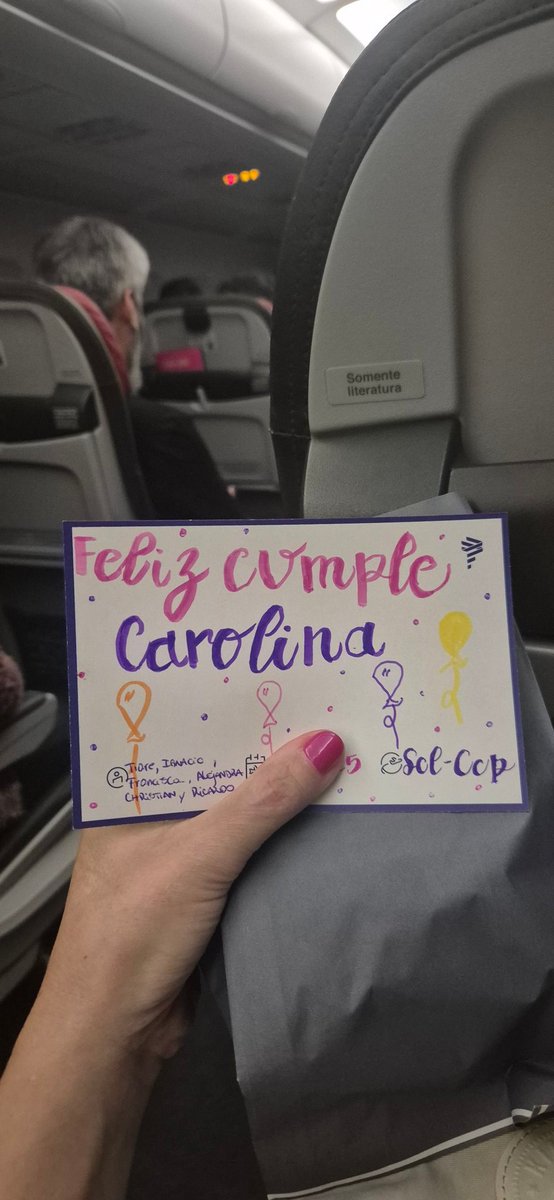 Somente
literatura
Feliz cumple
Carolina
Ignacio,
Francisca, Alejandra
Christian y Ricardo
5
Scl-Ccp